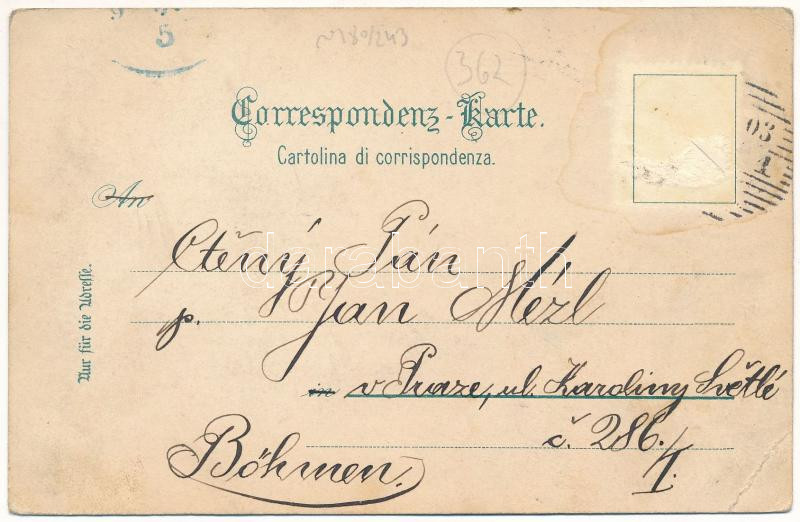 5
362
03
1
Correspondenz-Karte.
Cartolina di corrispondenza.
An
Nur für die Adresse.
Ctěný Pán
p. Jan Mézl
in v Praze, ul. Karoliny Světlé
č. 286./I.
Böhmen.
darabanth